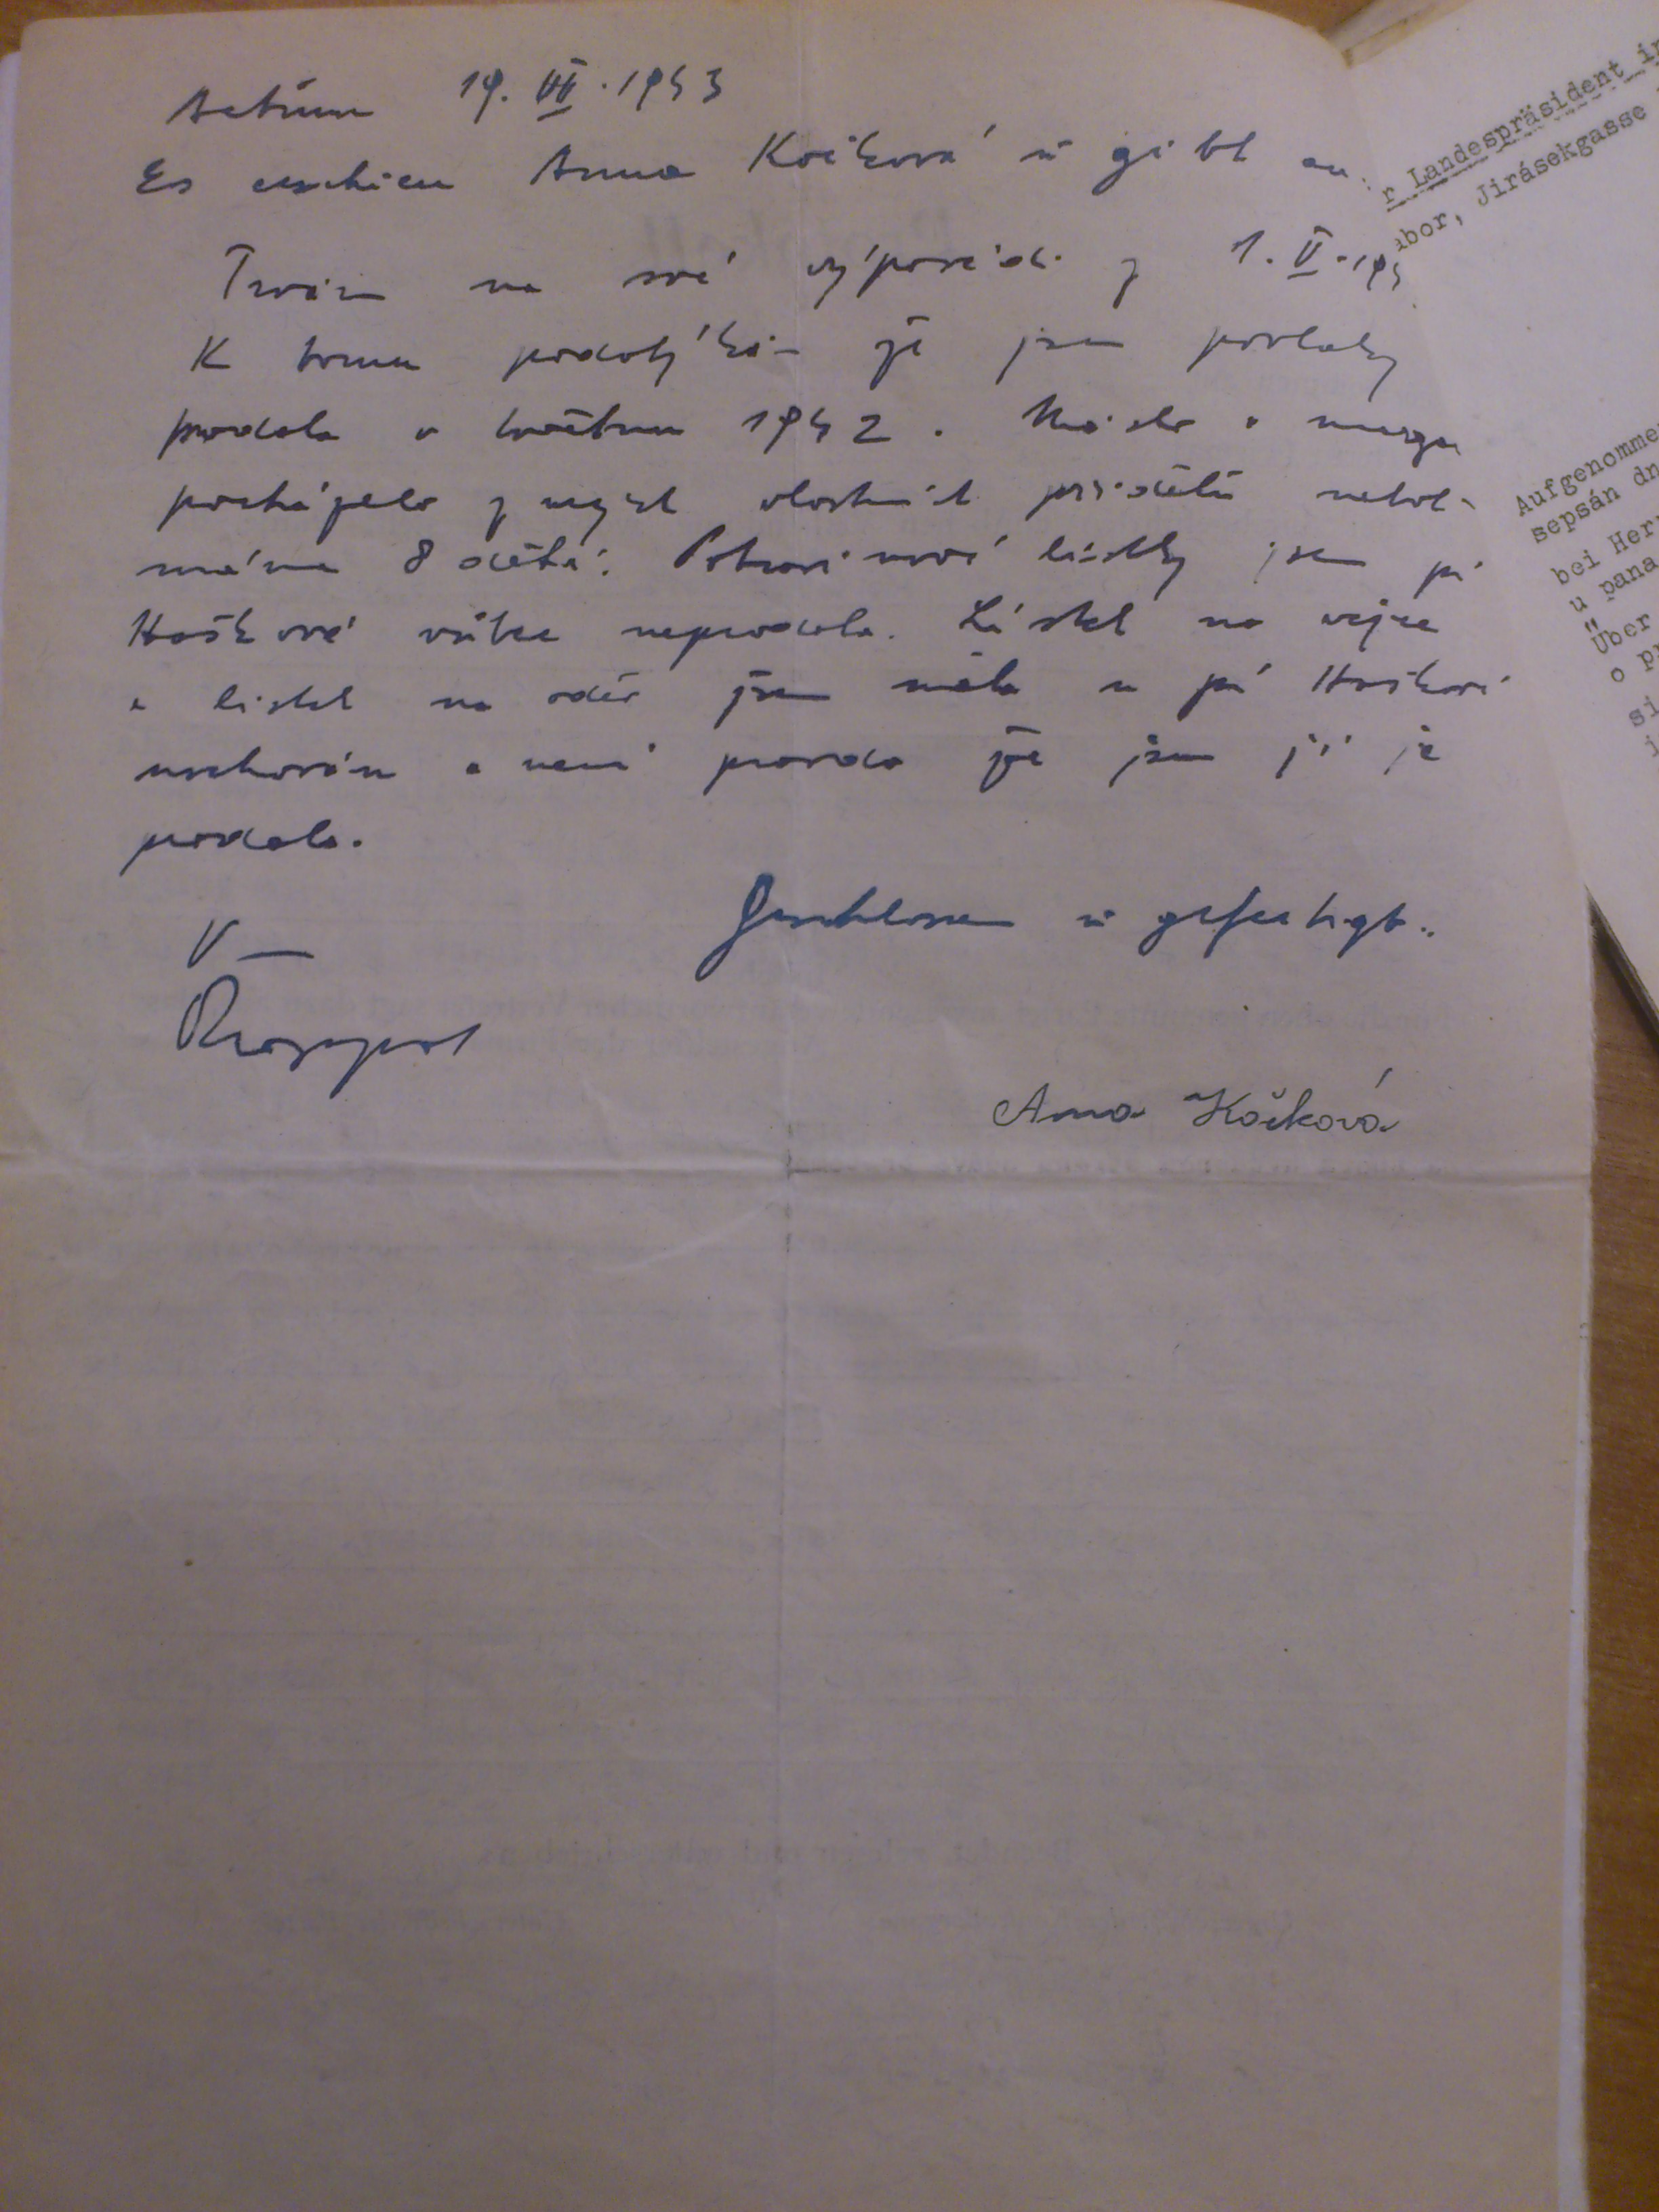 Aktum 19. VII. 1943
Es erschien Anna Kočková u gibt an:
Trvám na své výpovědi z 1. V. 194
K tomu podotýkám že jsem povlaky
prodala v květnu 1942. Máslo a
pocházelo z mých vlastních přídělů neboť
máme 8 dětí. Potravinové lístky jsem pí
Haškové vůbec neprodala. Lístek na vejce
a lístek na oděv jsem měla u pí Haškové
uschován a není pravda že jsem jí je
prodala.
Geschlossen u gefertigt.
Anna Kočková
r Landespräsident in
bor, Jirásekgasse
Aufgenomme
sepsán dn
bei Herr
u pana
Über
o p
si